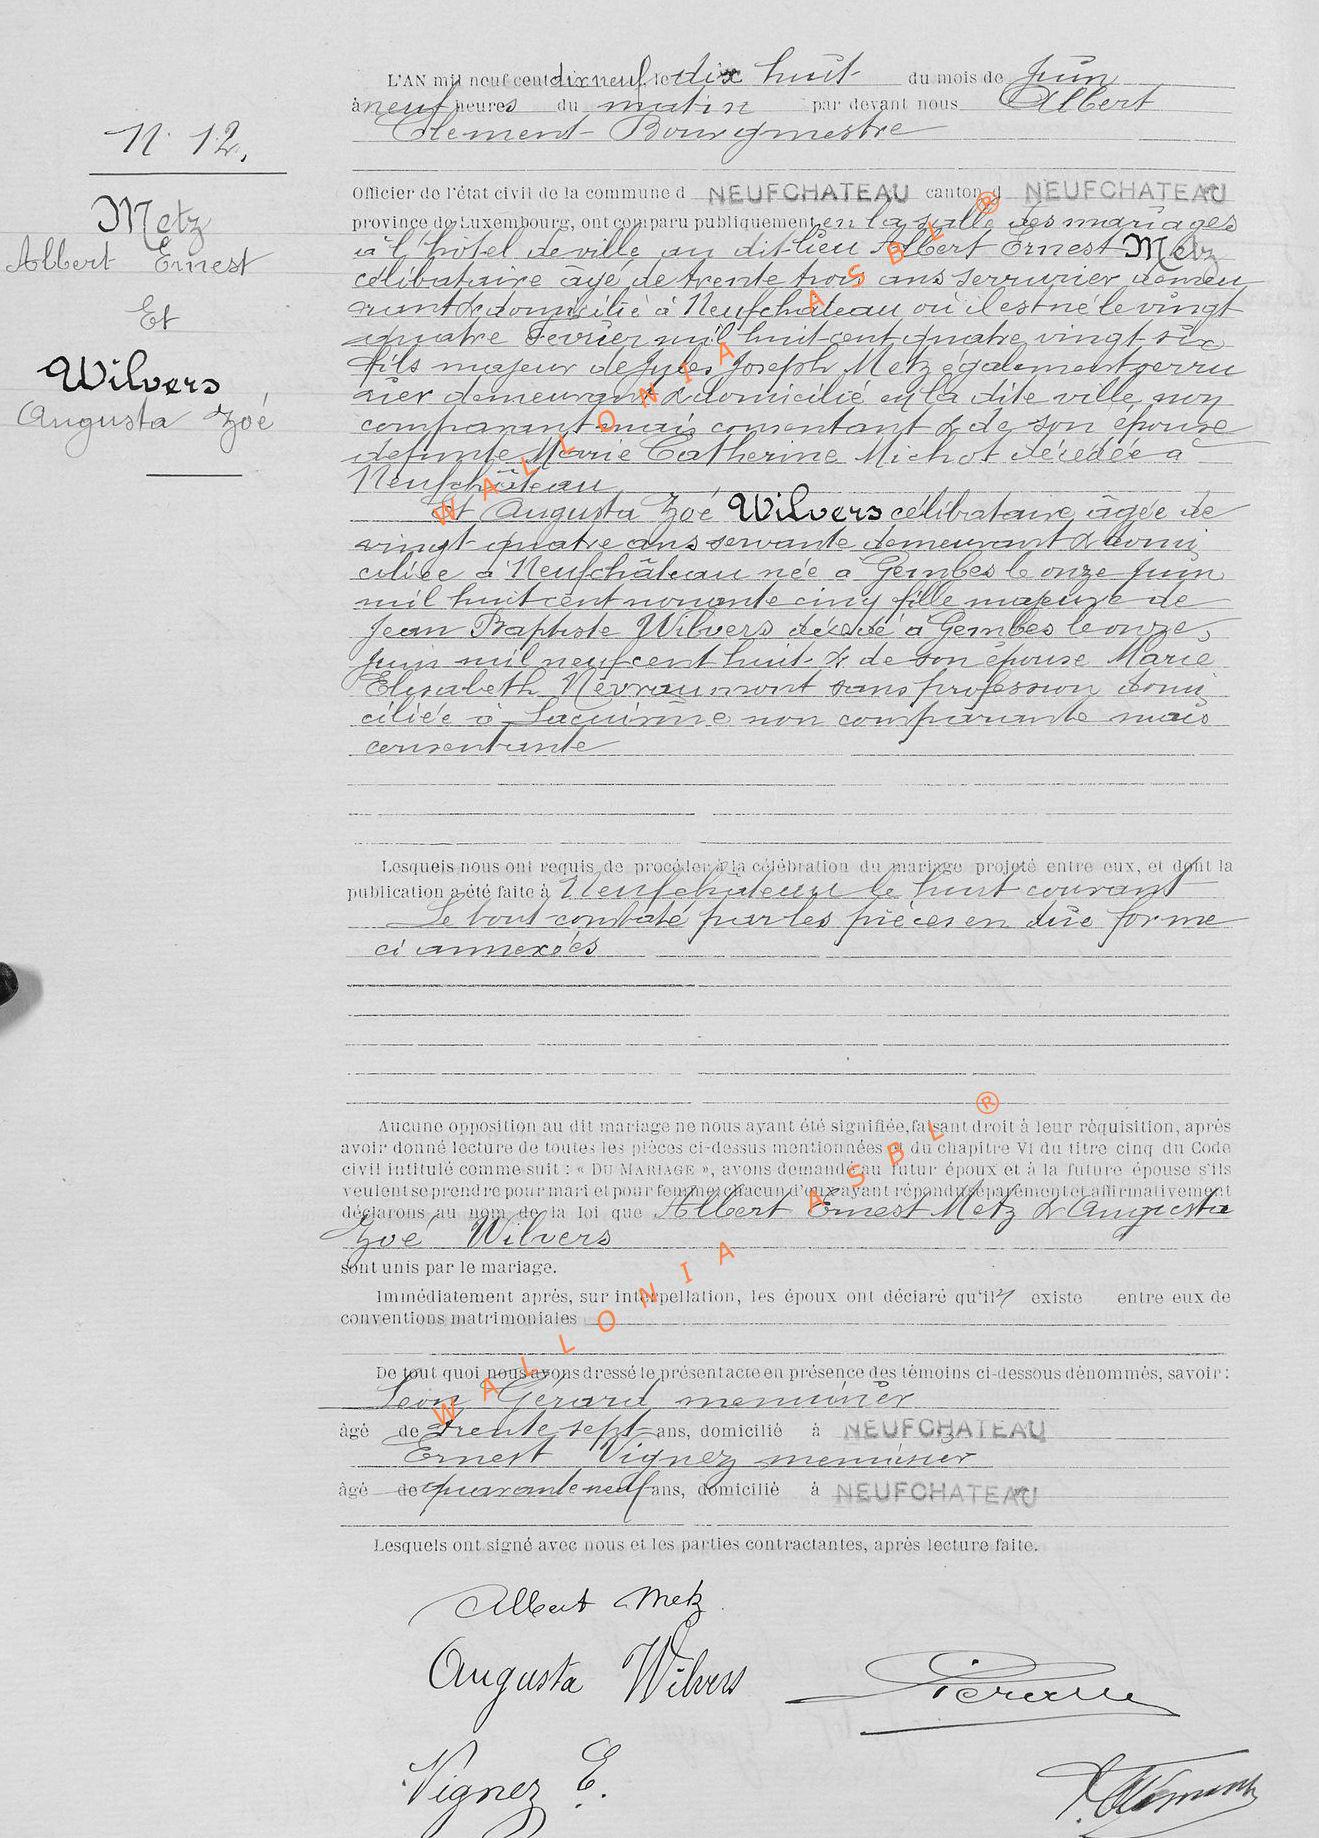 N. 12.
Metz
Albert Ernest
Et
Wilvers
Augusta Zoé
L'AN mil neuf cent dix neuf, le dix huit du mois de Juin
à neuf heures du matin par devant nous Albert
Clement Bourgmestre
Officier de l'état civil de la commune d NEUFCHATEAU canton d NEUFCHATEAU
province de Luxembourg, ont comparu publiquement en la salle des mariages
à l'hotel de ville au dit lieu Albert Ernest Metz
célibataire âgé de trente trois ans serrurier demeu
rant & domicilié à Neufchâteau où il est né le vingt
quatre Février mil huit cent quatre vingt six
fils majeur de Jules Joseph Metz également serru
rier demeurant & domicilié en la dite ville non
comparant mais consentant & de son épouse
défunte Marie Catherine Michot décédée à
Neufchâteau
Et Augusta Zoé Wilvers célibataire âgée de
vingt quatre ans servante demeurant & domi
ciliée à Neufchâteau née à Gembes le onze Juin
mil huit cent nonante cinq fille majeure de
Jean Baptiste Wilvers décédé à Gembes le onze
Juin mil neuf cent huit & de son épouse Marie
Elisabeth Névraumont sans profession domi
ciliée à non comparante mais
consentante
Lesquels nous ont requis de procéder à la célébration du mariage projeté entre eux, et dont la
publication a été faite à Neufchâteau le huit courant
Le tout constaté par les pièces en due forme
ci annexées
Aucune opposition au dit mariage ne nous ayant été signifiée, faisant droit à leur réquisition, après
avoir donné lecture de toutes les pièces ci-dessus mentionnées et du chapitre VI du titre cinq du Code
civil intitulé comme suit : « DU MARIAGE », avons demandé au futur époux et à la future épouse s'ils
veulent se prendre pour mari et pour femme; chacun d'eux ayant répondu séparément et affirmativement
déclarons au nom de la loi que Albert Ernest Metz & Augusta
Zoé Wilvers
sont unis par le mariage.
Immédiatement après, sur interpellation, les époux ont déclaré qu'il existe entre eux de
conventions matrimoniales
De tout quoi nous avons dressé le présent acte en présence des témoins ci-dessous dénommés, savoir :
Léon Gérard menuisier
âgé de trente sept ans, domicilié à NEUFCHATEAU
Ernest Vignez menuisier
âgé de quarante neuf ans, domicilié à NEUFCHATEAU
Lesquels ont signé avec nous et les parties contractantes, après lecture faite.
Albert Metz
Augusta Wilvers
Vignez E.
WALLONIA ASBL ®
WALLONIA ASBL ®